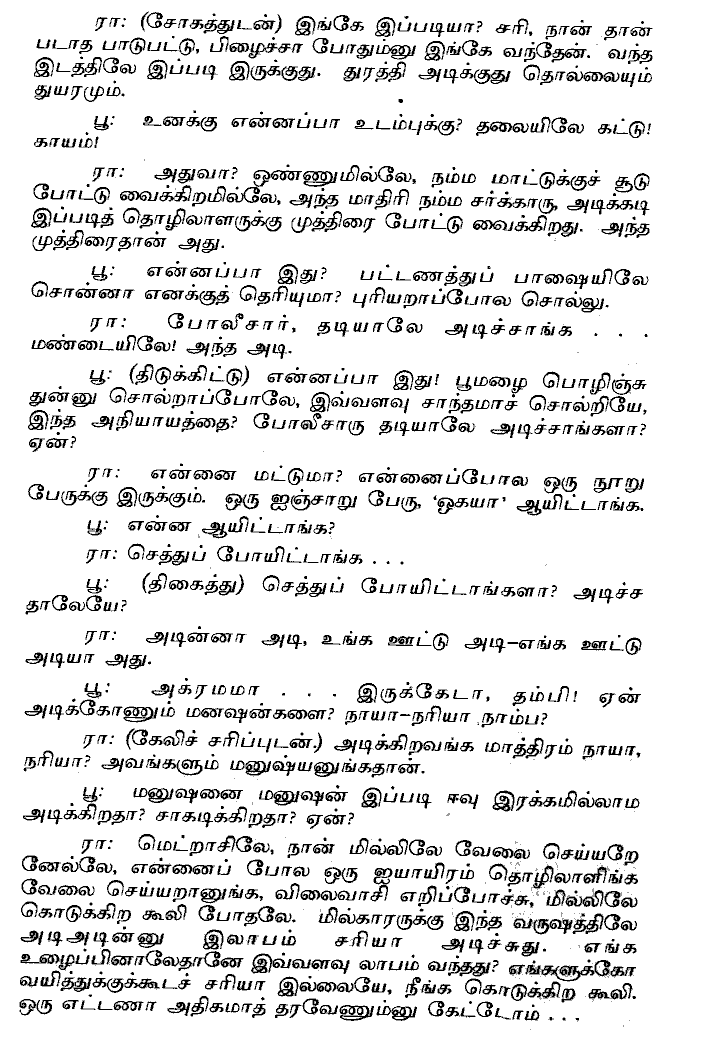 ரா: (சோகத்துடன்) இங்கே இப்படியா? சரி, நான் தான்
படாத பாடுபட்டு, பிழைச்சா போதும்னு இங்கே வந்தேன். வந்த
இடத்திலே இப்படி இருக்குது. துரத்தி அடிக்குது தொல்லையும்
துயரமும்.
பூ: உனக்கு என்னப்பா உடம்புக்கு? தலையிலே கட்டு!
காயம்!
ரா: அதுவா? ஒண்ணுமில்லே, நம்ம மாட்டுக்குச் சூடு
போட்டு வைக்கிறமில்லே, அந்த மாதிரி நம்ம சர்க்காரு, அடிக்கடி
இப்படித் தொழிலாளருக்கு முத்திரை போட்டு வைக்கிறது. அந்த
முத்திரைதான் அது.
பூ: என்னப்பா இது? பட்டணத்துப் பாஷையிலே
சொன்னா எனக்குத் தெரியுமா? புரியறாப்போல சொல்லு.
ரா: போலீசார், தடியாலே அடிச்சாங்க . . .
மண்டையிலே! அந்த அடி.
பூ: (திடுக்கிட்டு) என்னப்பா இது! பூமழை பொழிஞ்சு
துன்னு சொல்றாப்போலே, இவ்வளவு சாந்தமாச் சொல்றியே,
இந்த அநியாயத்தை? போலீசாரு தடியாலே அடிச்சாங்களா?
ஏன்?
ரா: என்னை மட்டுமா? என்னைப்போல ஒரு நூறு
பேருக்கு இருக்கும். ஒரு ஐஞ்சாறு பேரு, ‘ஒகயா’ ஆயிட்டாங்க.
பூ: என்ன ஆயிட்டாங்க?
ரா: செத்துப் போயிட்டாங்க . . .
பூ: (திகைத்து) செத்துப் போயிட்டாங்களா? அடிச்ச
தாலேயே?
ரா: அடின்னா அடி, உங்க ஊட்டு அடி–எங்க ஊட்டு
அடியா அது.
பூ: அக்ரமமா . . . இருக்கேடா, தம்பி! ஏன்
அடிக்கோணும் மனஷன்களை? நாயா–நரியா நாம்ப?
ரா: (கேலிச் சரிப்புடன்.) அடிக்கிறவங்க மாத்திரம் நாயா,
நரியா? அவங்களும் மனுஷ்யனுங்கதான்.
பூ: மனுஷனை மனுஷன் இப்படி ஈவு இரக்கமில்லாம
அடிக்கிறதா? சாகடிக்கிறதா? ஏன்?
ரா: மெட்றாசிலே, நான் மில்லிலே வேலை செய்யறே
னேல்லே, என்னைப் போல ஒரு ஐயாயிரம் தொழிலாளிங்க
வேலை செய்யறானுங்க, விலைவாசி எறிப்போச்சு, மில்லிலே
கொடுக்கிற கூலி போதலே. மில்காரருக்கு இந்த வருஷத்திலே
அடிஅடின்னு இலாபம் சரியா அடிச்சுது. எங்க
உழைப்பினாலேதானே இவ்வளவு லாபம் வந்தது? எங்களுக்கோ
வயித்துக்குக்கூடச் சரியா இல்லையே, நீங்க கொடுக்கிற கூலி.
ஒரு எட்டணா அதிகமாத் தரவேணும்னு கேட்டோம் . . .